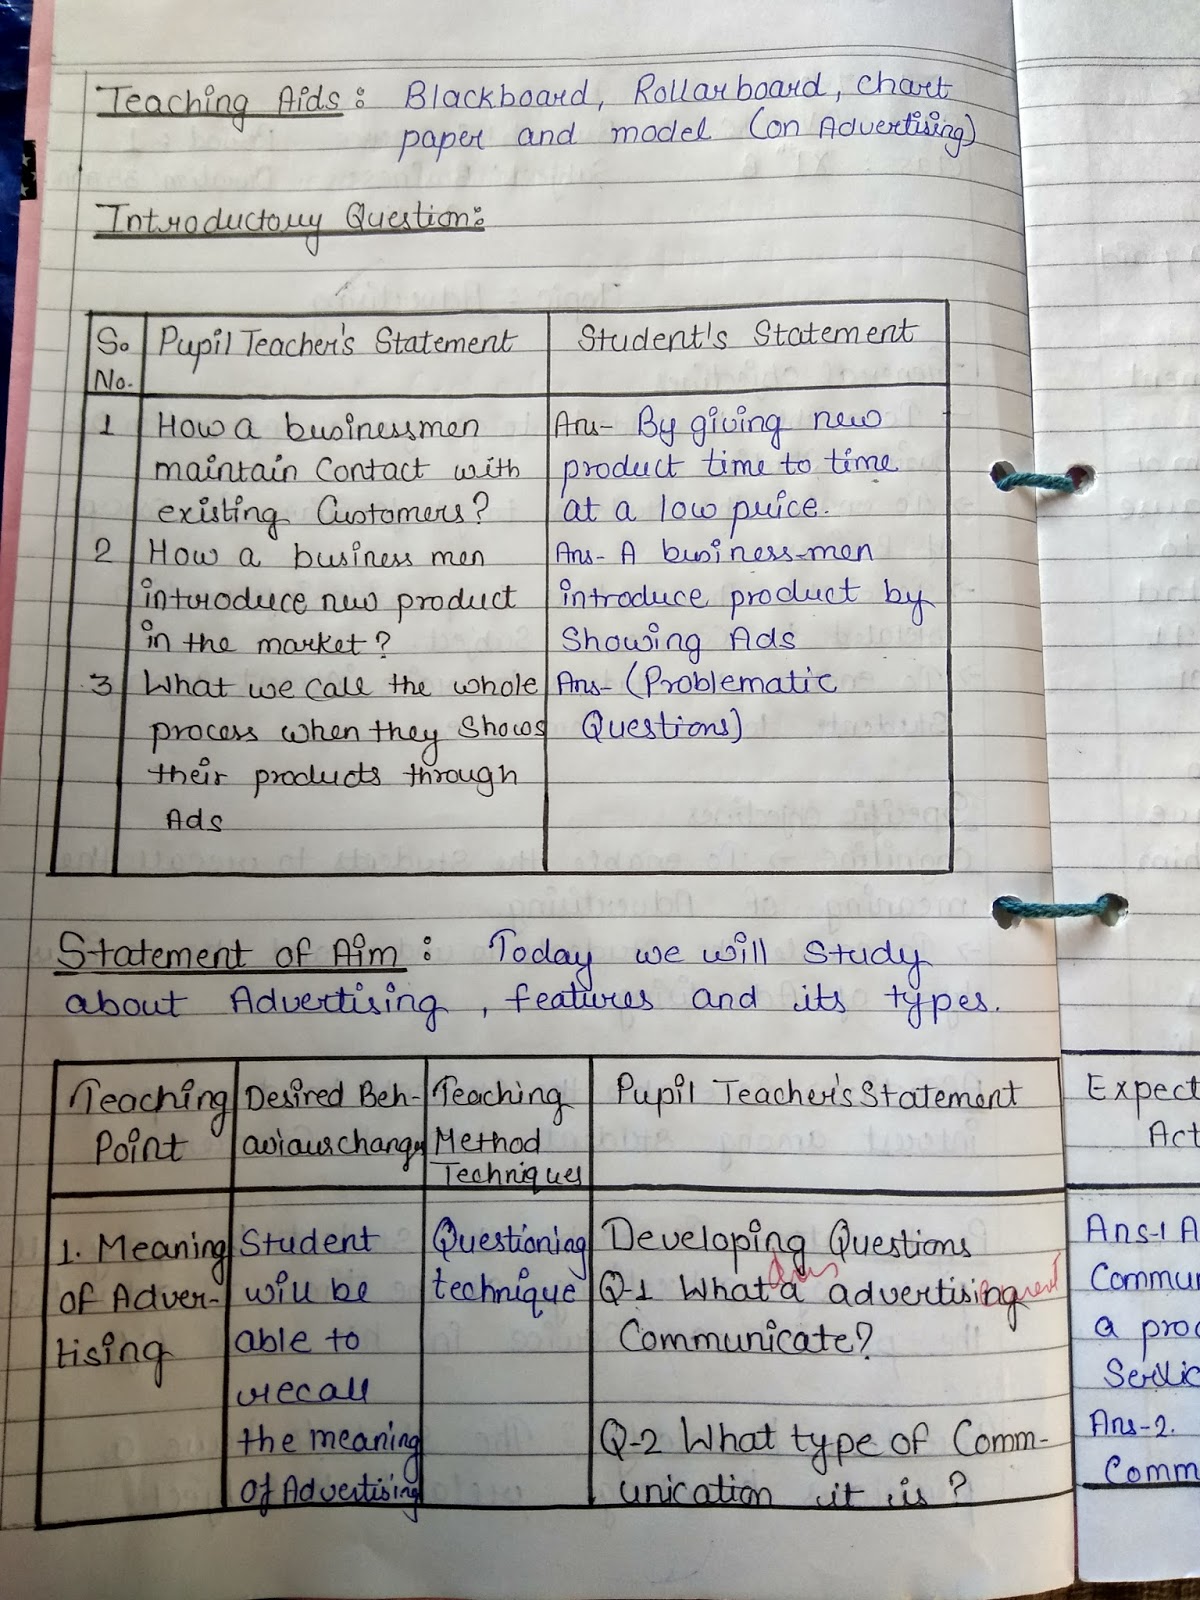 Teaching Aids: Blackboard, Rollarboard, chart
paper and model (on Advertising)
Introductory Question:
S. No.
Pupil Teacher's Statement
Student's Statement
1
How a businessmen
maintain Contact with
existing Customers?
Ans- By giving new
product time to time
at a low price.
2
How a business men
introduce new product
in the market?
Ans- A business-men
introduce product by
Showing Ads
3
What we call the whole
process when they Shows
their products through
Ads
Ans- (Problematic
Questions)
Statement of Aim: Today we will Study
about Advertising, features and its types.
Teaching
Point
Desired Beh-
aviour change
Teaching
Method
Techniques
Pupil Teacher's Statement
Expect
Act
1. Meaning
of Adver-
tising
Student
will be
able to
recall
the meaning
of Advertising
Questioning
technique
Developing Questions
Q-1 What a advertising
Communicate?
Q-2 What type of Comm-
unication it is?
Ans-1 A
Commu
a pro
Servic
Ans-2.
Comm